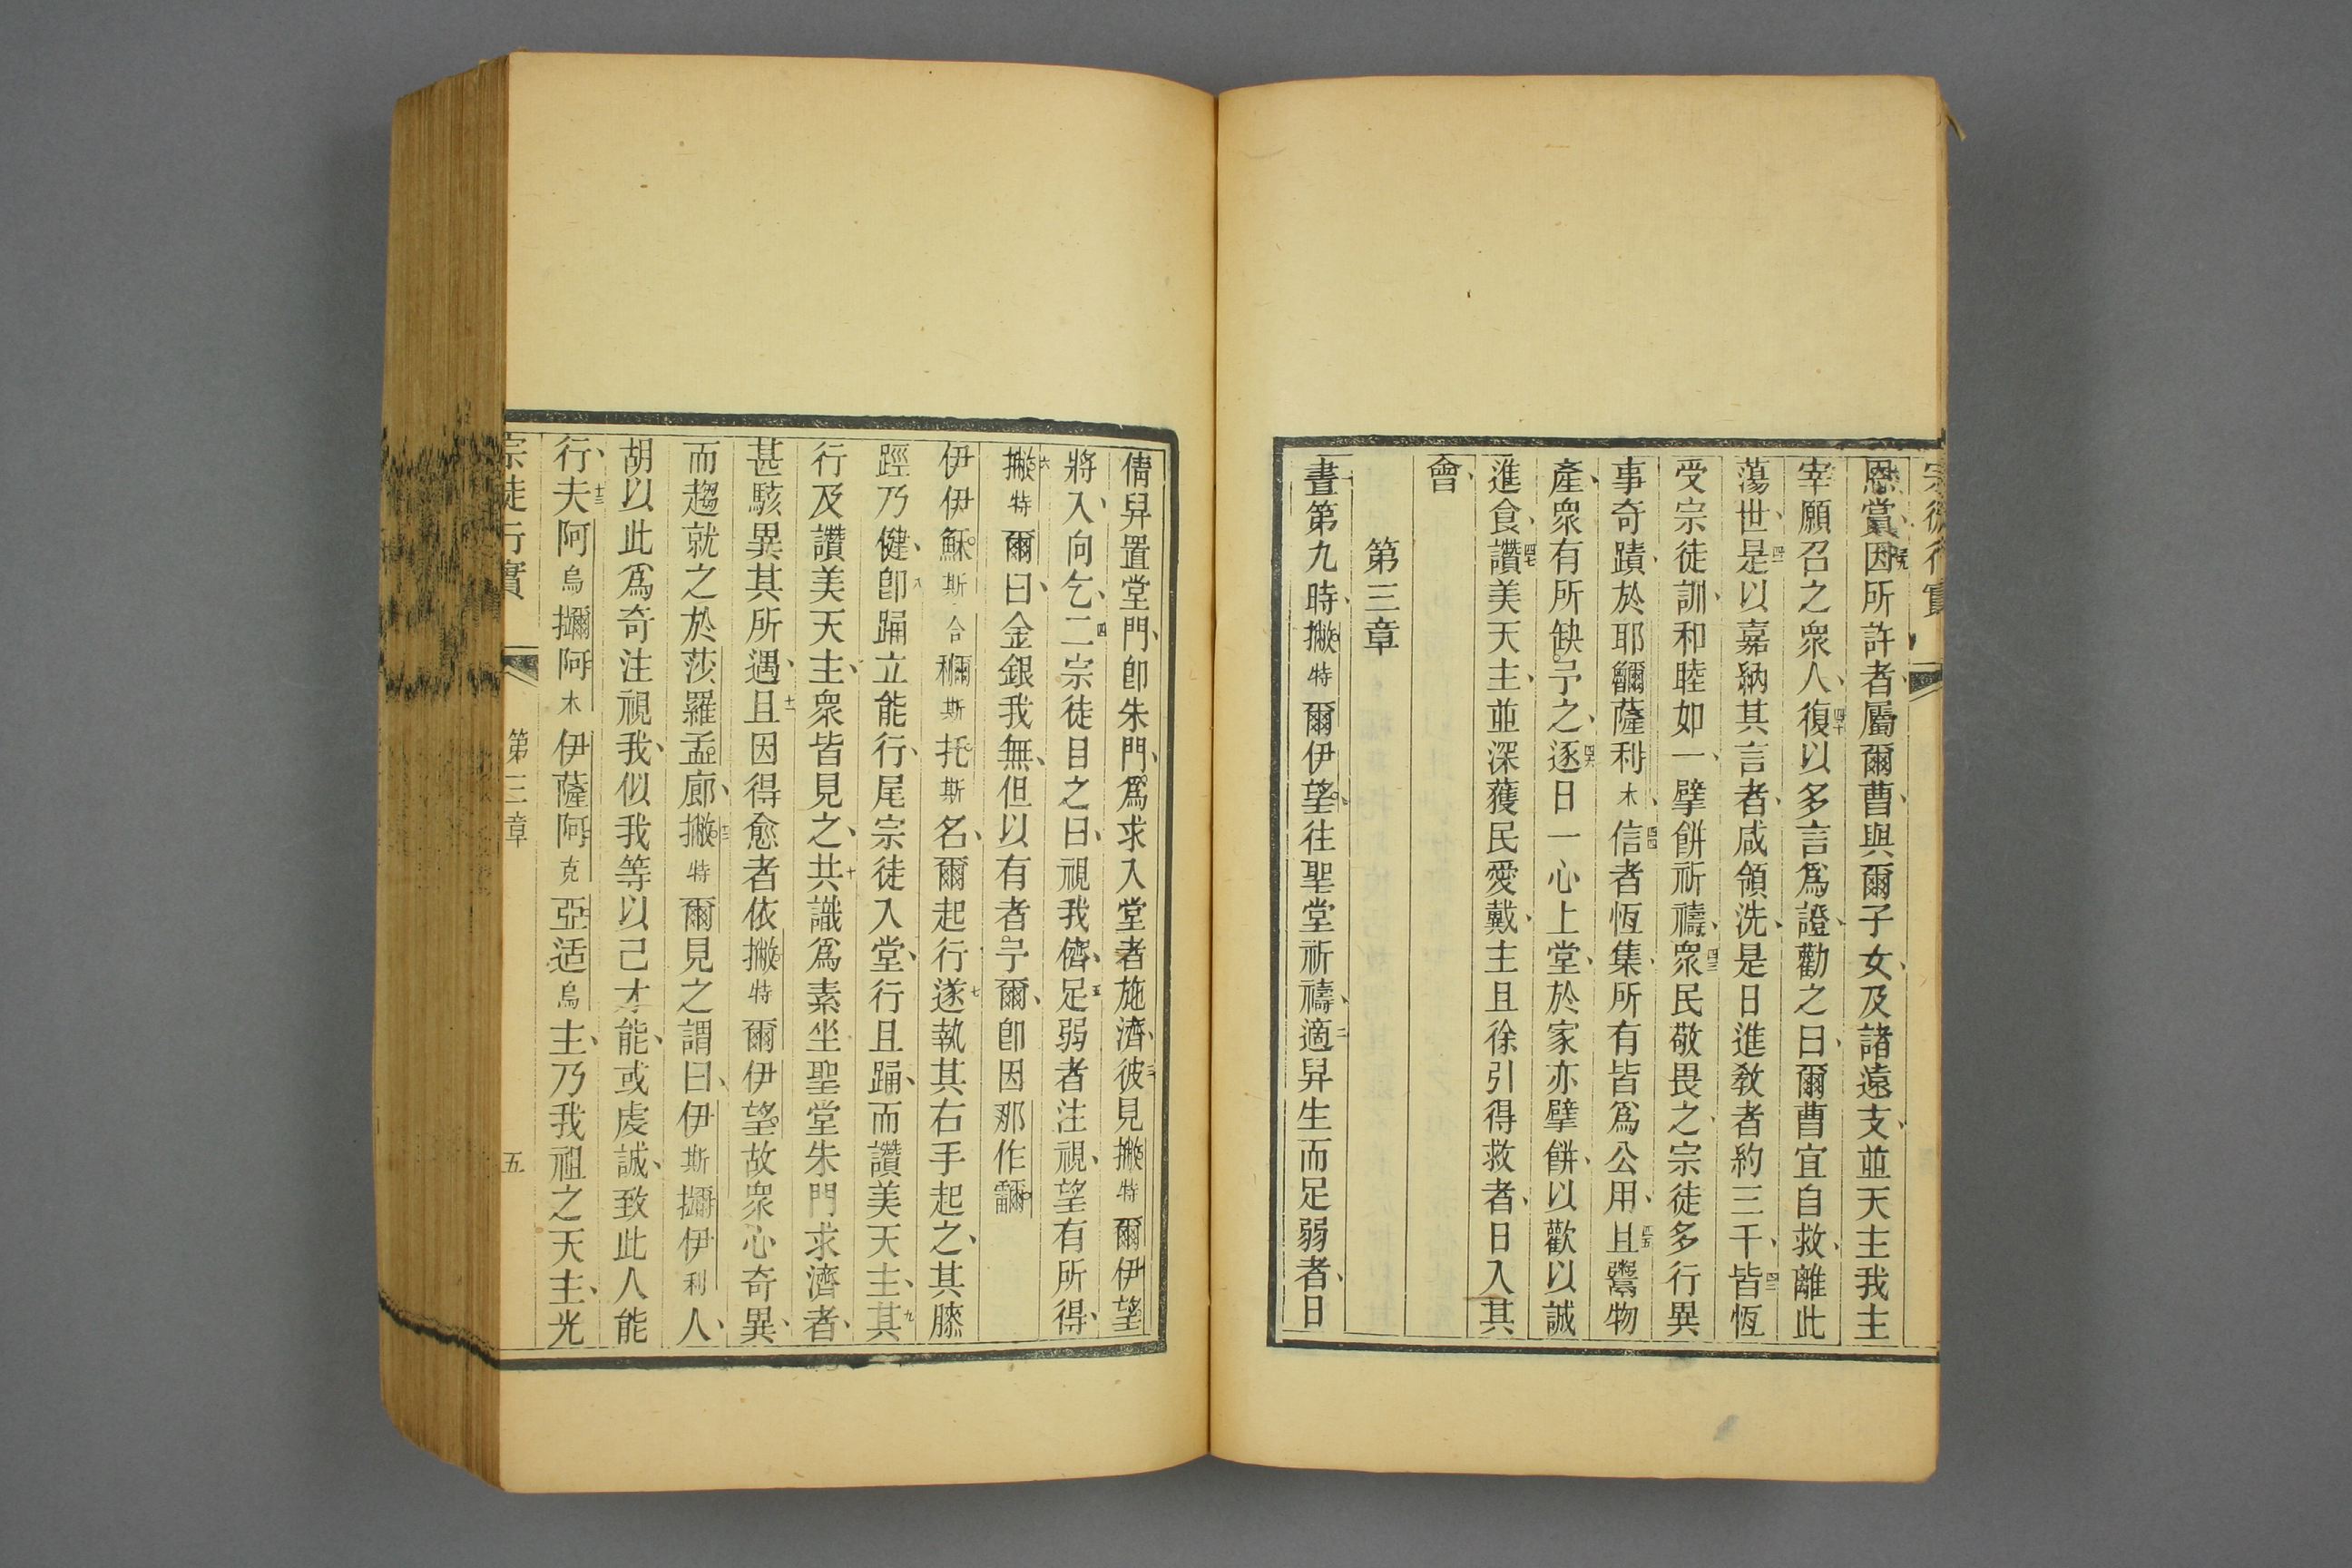 宗徒行實
恩賞、因所許者、屬爾曹、與爾子女、及諸遠支、並天主我主
宰願召之衆人、四十復以多言爲證、勸之曰、爾曹宜自救、離此
蕩世、四一是以嘉納其言者、咸領洗、是日進敎者約三千、四二皆恆
受宗徒訓、和睦如一、擘餅祈禱、四三衆民敬畏之、宗徒多行異
事奇蹟、於耶䚊薩利木、四四信者恆集、所有皆爲公用、四五且鬻物
產、衆有所缺、予之、四六逐日一心上堂、於家亦擘餅、以歡以誠
進食、四七讚美天主、並深獲民愛戴、主且徐引得救者、日入其
會、
第三章
一晝第九時、撇特爾伊望、往聖堂祈禱、二適舁生而足弱者、日
倩舁置堂門、卽朱門、爲求入堂者施濟、三彼見撇特爾伊望
將入、向乞、四二宗徒目之曰、視我儕、五足弱者注視、望有所得、
六撇特爾曰、金銀我無、但以有者予爾、卽因那作靌
伊伊穌斯合穪斯托斯名、爾起行、七遂執其右手起之、其膝
踁乃健、八卽踊立能行、尾宗徒入堂、行且踊、而讚美天主、九其
行及讚美天主、衆皆見之、十共識爲素坐聖堂朱門求濟者、
甚駭異其所遇、十一且因得愈者依撇特爾伊望、故衆心奇異、
而趨就之於莎羅孟廊、十二撇特爾見之、謂曰、伊斯擟伊利人、
胡以此爲奇、注視我、似我等以己才能、或虔誠、致此人能
行、十三夫阿烏擟阿木伊薩阿克亞适烏主、乃我祖之天主、光
宗徒行實
第三章
五